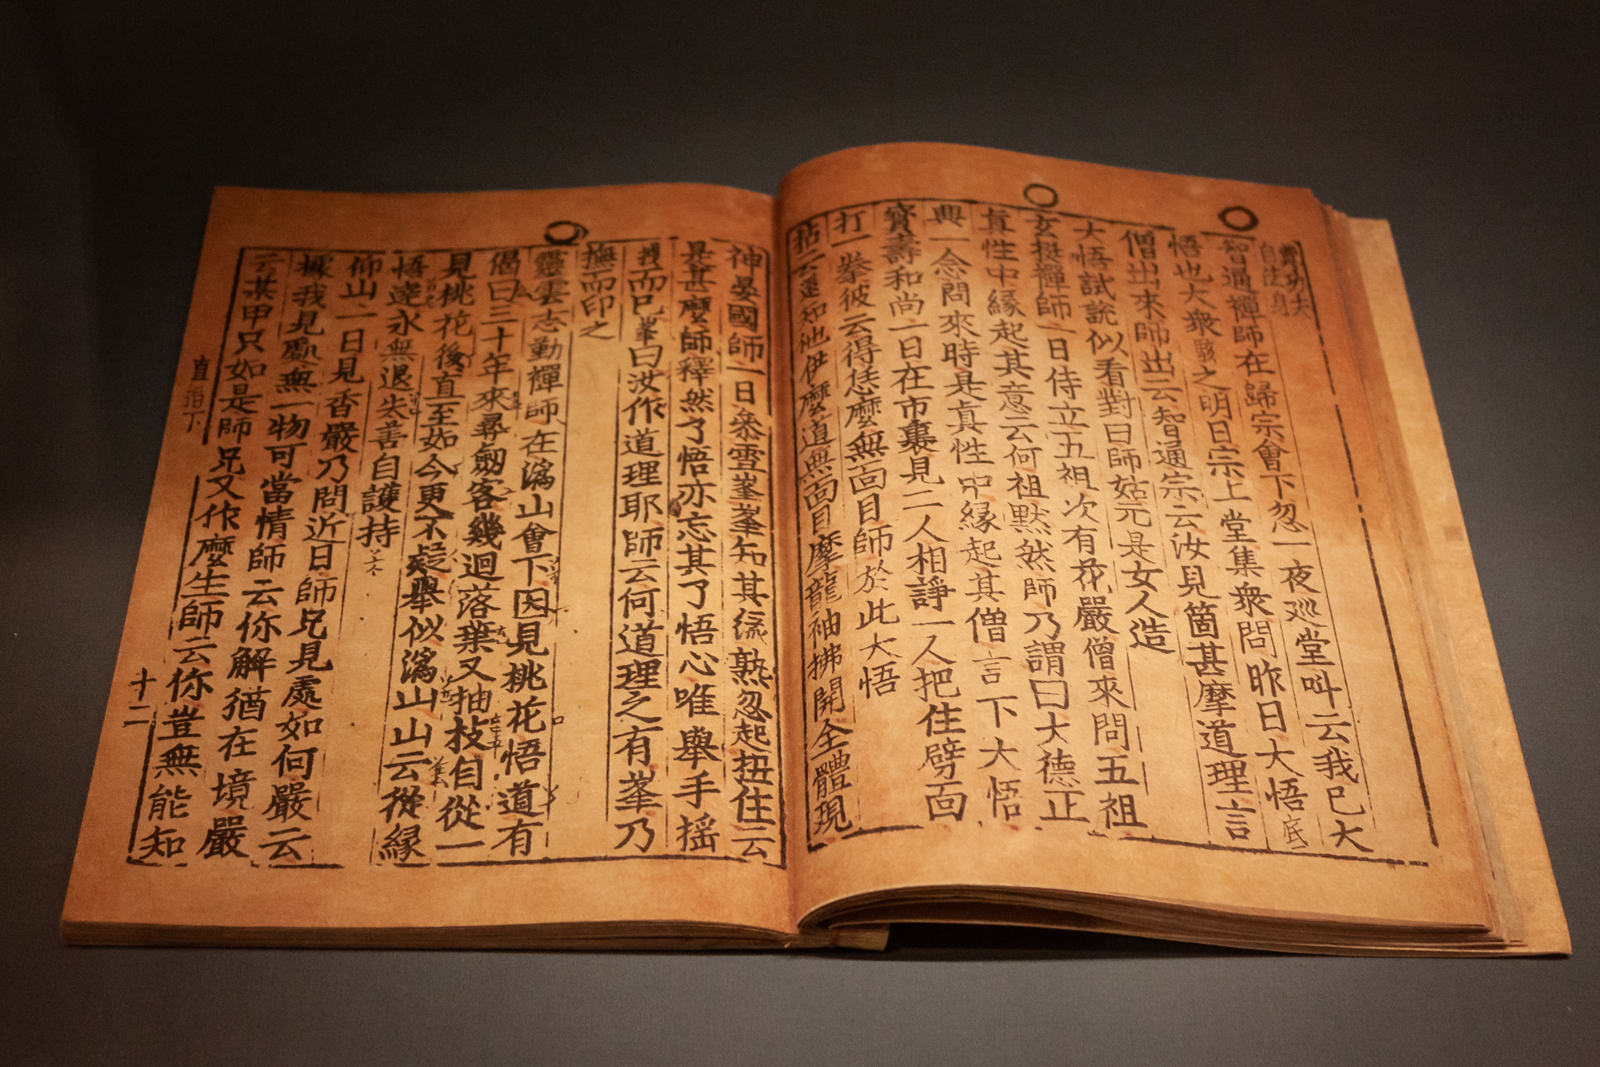 智通禪師在歸宗會下忽一夜巡堂叫云我已大
悟也大衆駭之明日宗上堂集衆問昨日大悟底
僧出來師出云智通宗云汝見箇甚麼道理言
大悟試說似看對曰師姑元是女人造
玄挺禪師一日侍立五祖次有花嚴僧來問五祖
眞性中緣起其意云何祖默然師乃謂曰大德正
興一念問來時是眞性中緣起其僧言下大悟
寶壽和尚一日在市裏見二人相諍一人把住劈面
打一拳彼云得恁麼無面目師於此大悟
拈云還知他伊麼道無面目麼龍袖拂開全體現
神晏國師一日叅雪峯峯知其緣熟忽起扭住云
是甚麼師釋然了悟亦忘其了悟心唯舉手搖
拽而已峯曰汝作道理耶師云何道理之有峯乃
撫而印之
靈雲志勤禪師在潙山會下因見桃花悟道有
偈曰三十年來尋劒客幾迴落葉又抽枝自從一
見桃花後直至如今更不疑舉似潙山山云從緣
悟達永無退失善自護持
仰山一日見香嚴乃問近日師兄見處如何嚴云
據我見處無一物可當情師云你解猶在境嚴
云某甲只如是師兄又作麼生師云你豈無能知
直指下
十二